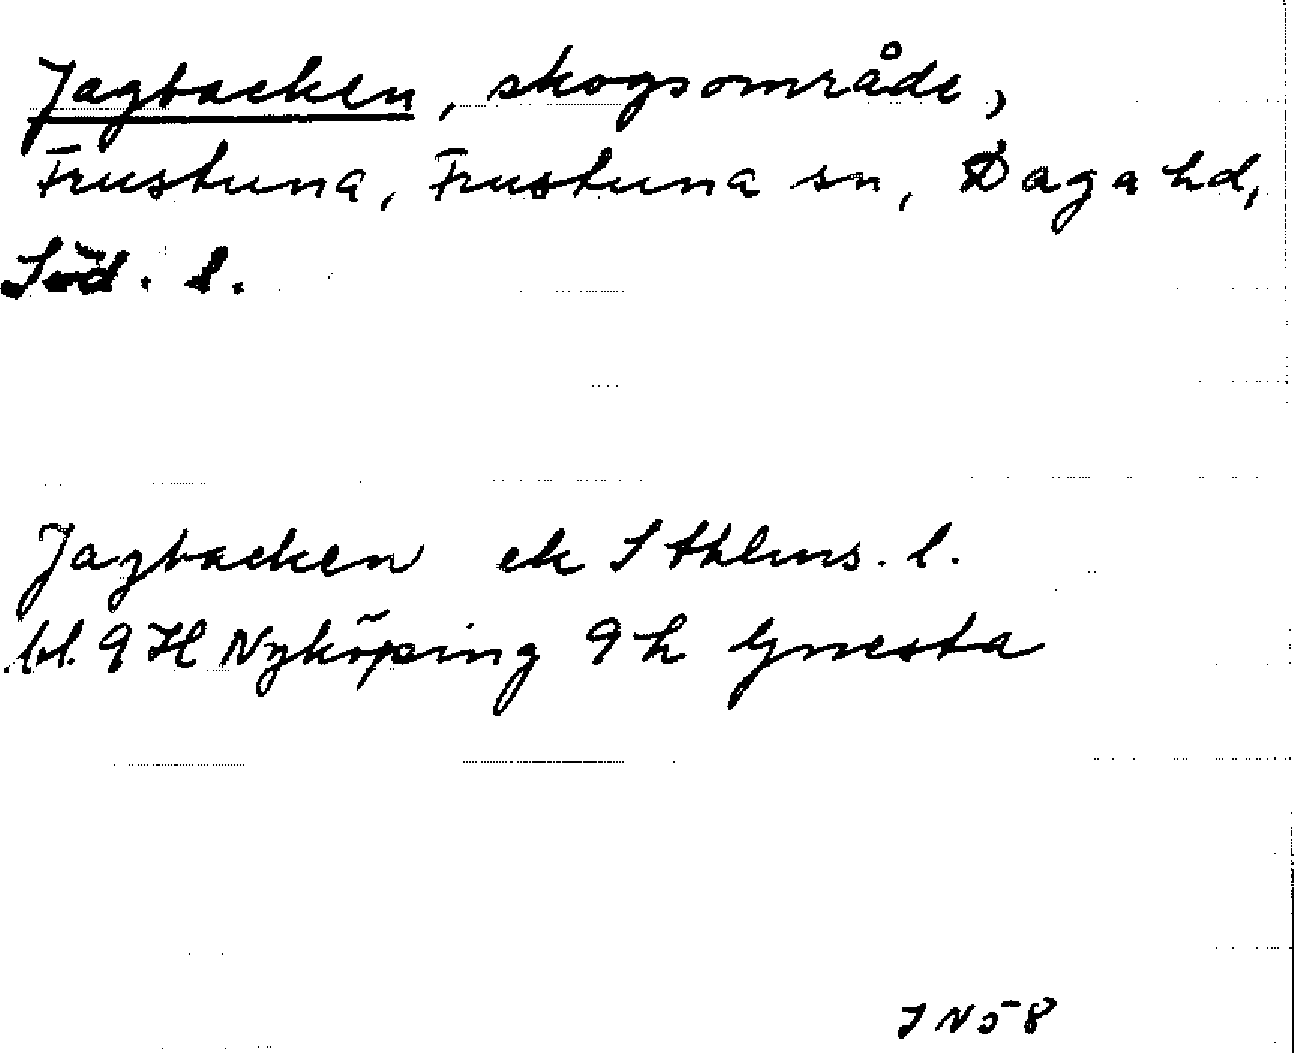 Jagbacken, skogsområde,
Frustuna, Frustuna sn, Daga hd,
Söd. l.
Jagbacken ek Sthlms. l.
bl. 9 H Nyköping 9 h Gnesta